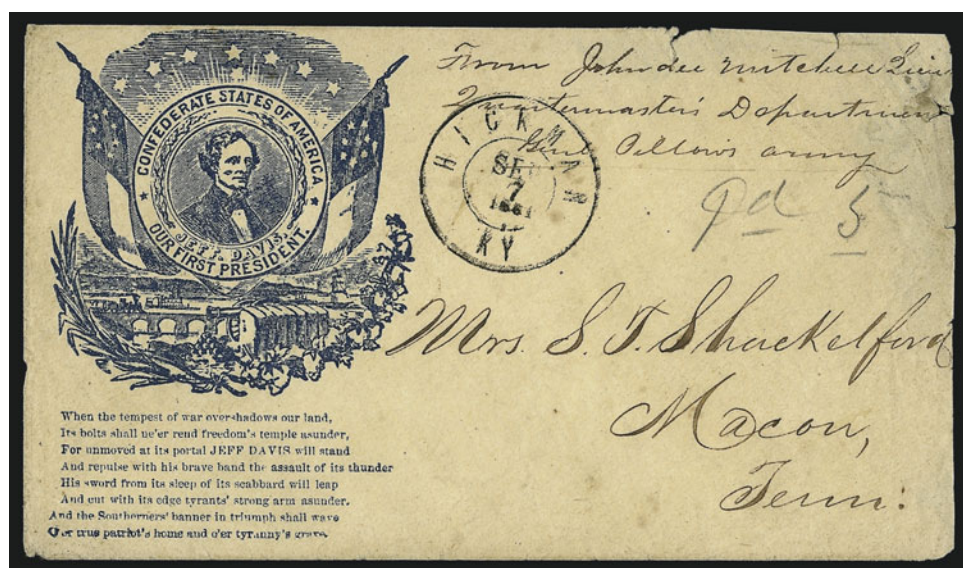 CONFEDERATE STATES OF AMERICA
JEFF. DAVIS.
OUR FIRST PRESIDENT.
From John dee Mitchell
Quartermaster's Department
Genl Pillow's army
HICKMAN
SEP
7
1861
KY
Pd 5
Mrs. S. T. Shackelford
Macon,
Tenn:
When the tempest of war overshadows our land,
Its bolts shall ne'er rend freedom's temple asunder,
For unmoved at its portal JEFF DAVIS will stand
And repulse with his brave band the assault of its thunder
His sword from its sleep of its scabbard will leap
And cut with its edge tyrants' strong arm asunder.
And the Southerners' banner in triumph shall wave
O'er true patriot's home and o'er tyranny's grave.